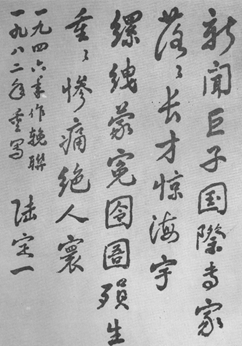 新闻巨子国际专家
落落长才惊海宇
缧绁蒙冤囹圄殒生
重重惨痛绝人寰
一九四六年作挽联
一九八二年重写
陆定一